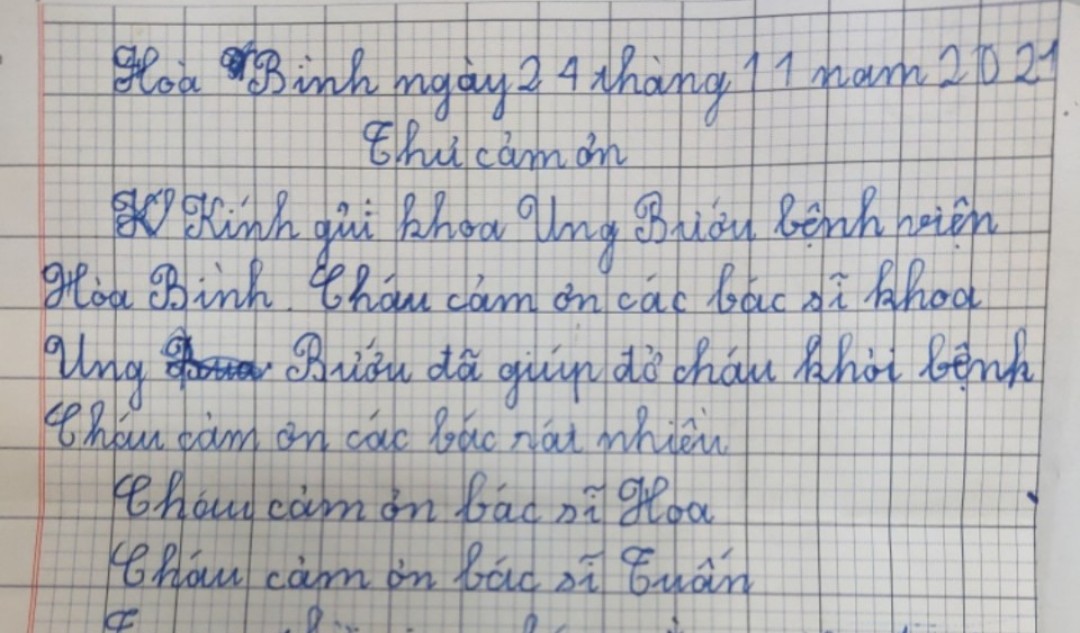 Hoà Bình ngày 24 tháng 11 nam 2021
Thư cảm ơn
Kính gửi khoa Ung Bướu bệnh viện
Hòa Bình. Cháu cảm ơn các bác sĩ khoa
Ung Bướu đã giúp đỡ cháu khỏi bệnh
Cháu cảm ơn các bác rất nhiều
Cháu cảm ơn bác sĩ Hoa
Cháu cảm ơn bác sĩ Tuấn